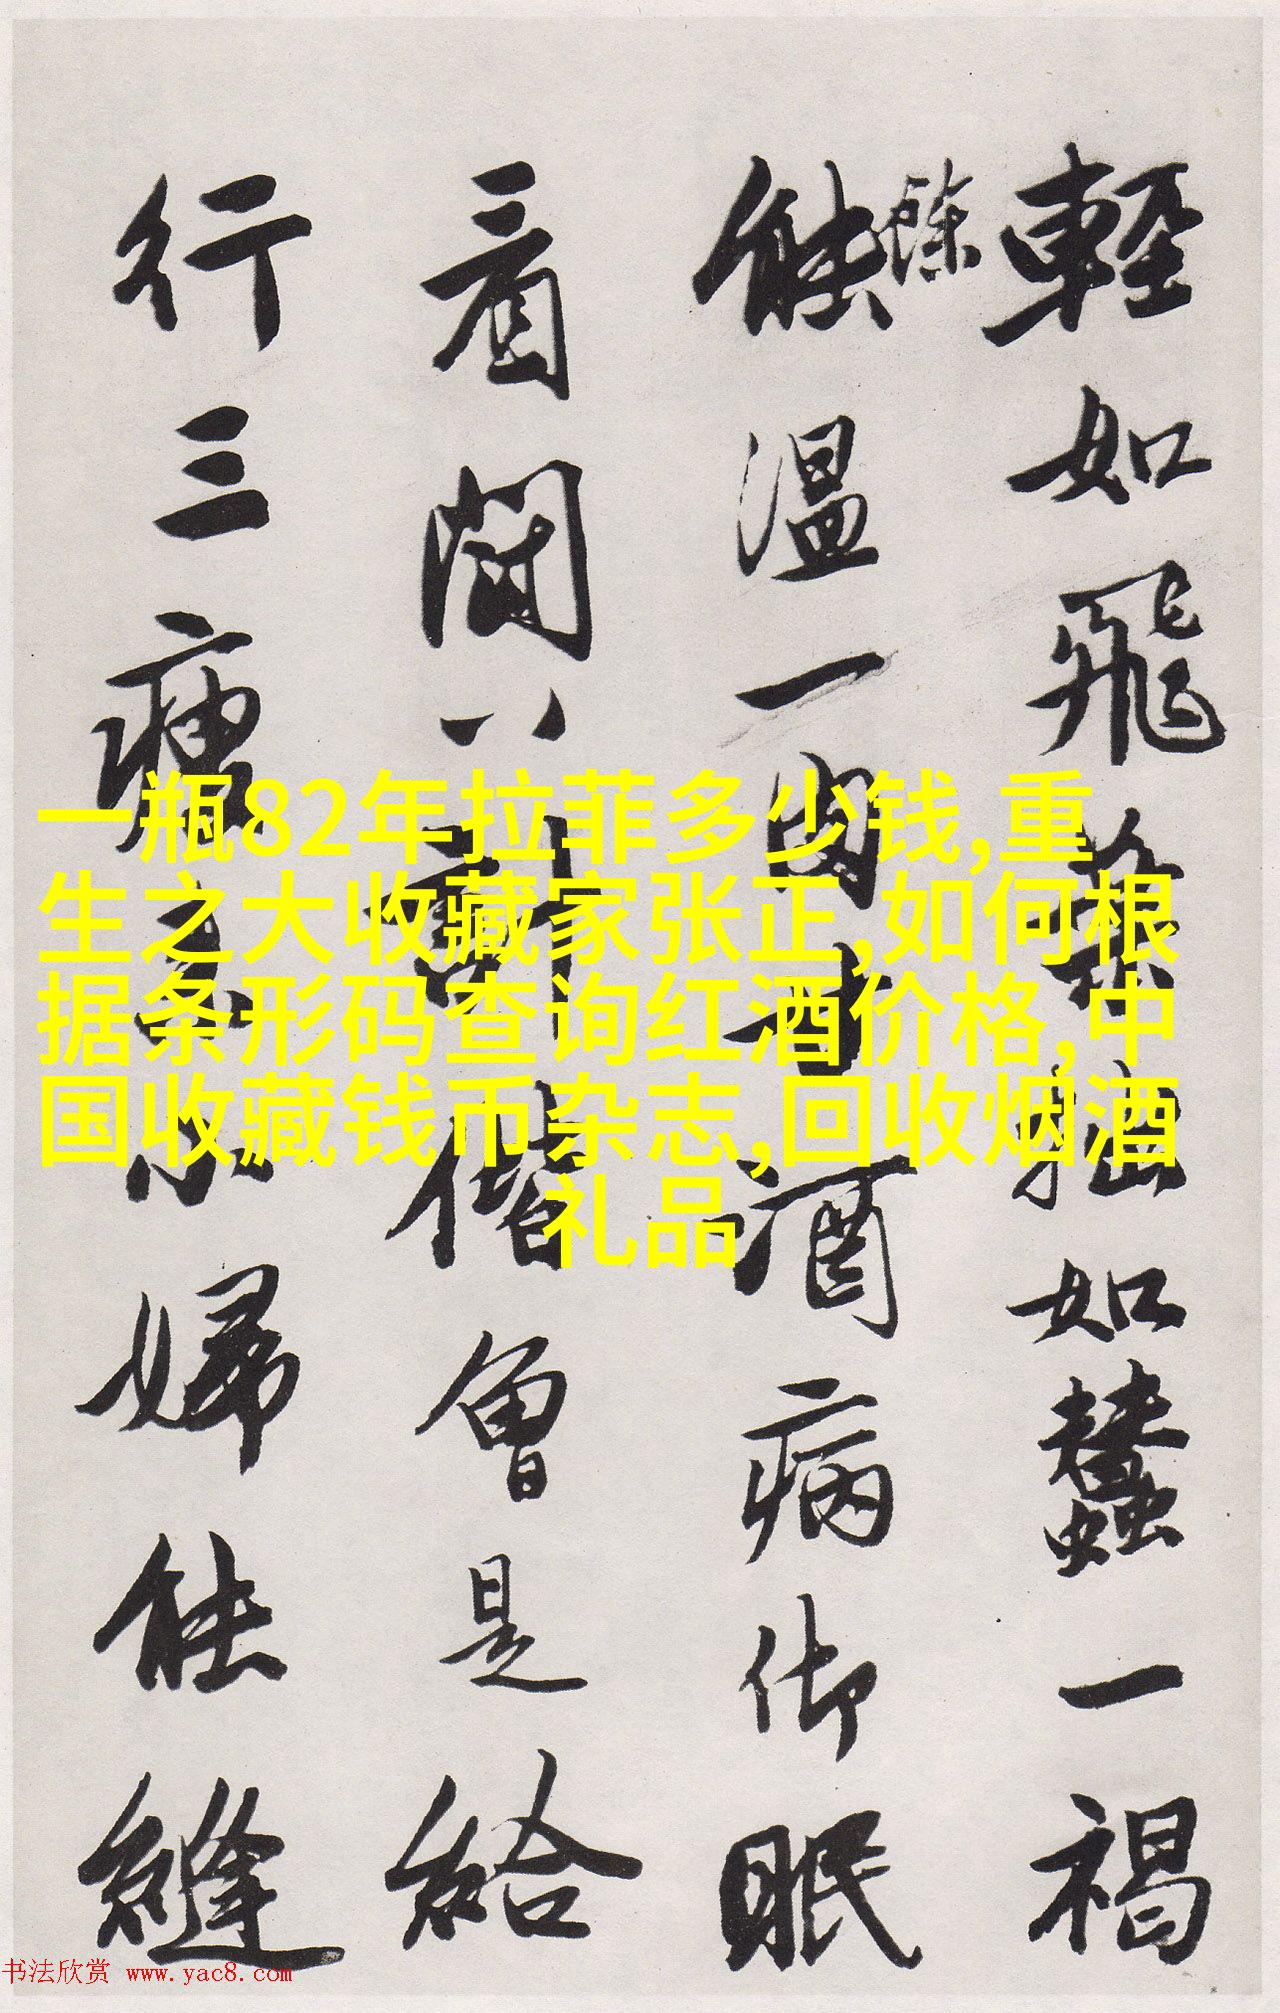 輕如飛拙如一褐
餘
能溫一肉酒病御眠
看八曾是給
行三小婦能縫
一瓶82年拉菲多少钱,重
生之大收藏家张正,如何根
据条形码查询红酒价格,中
国收藏钱币杂志,回收烟酒
礼品
书法欣赏 www.yac8.com